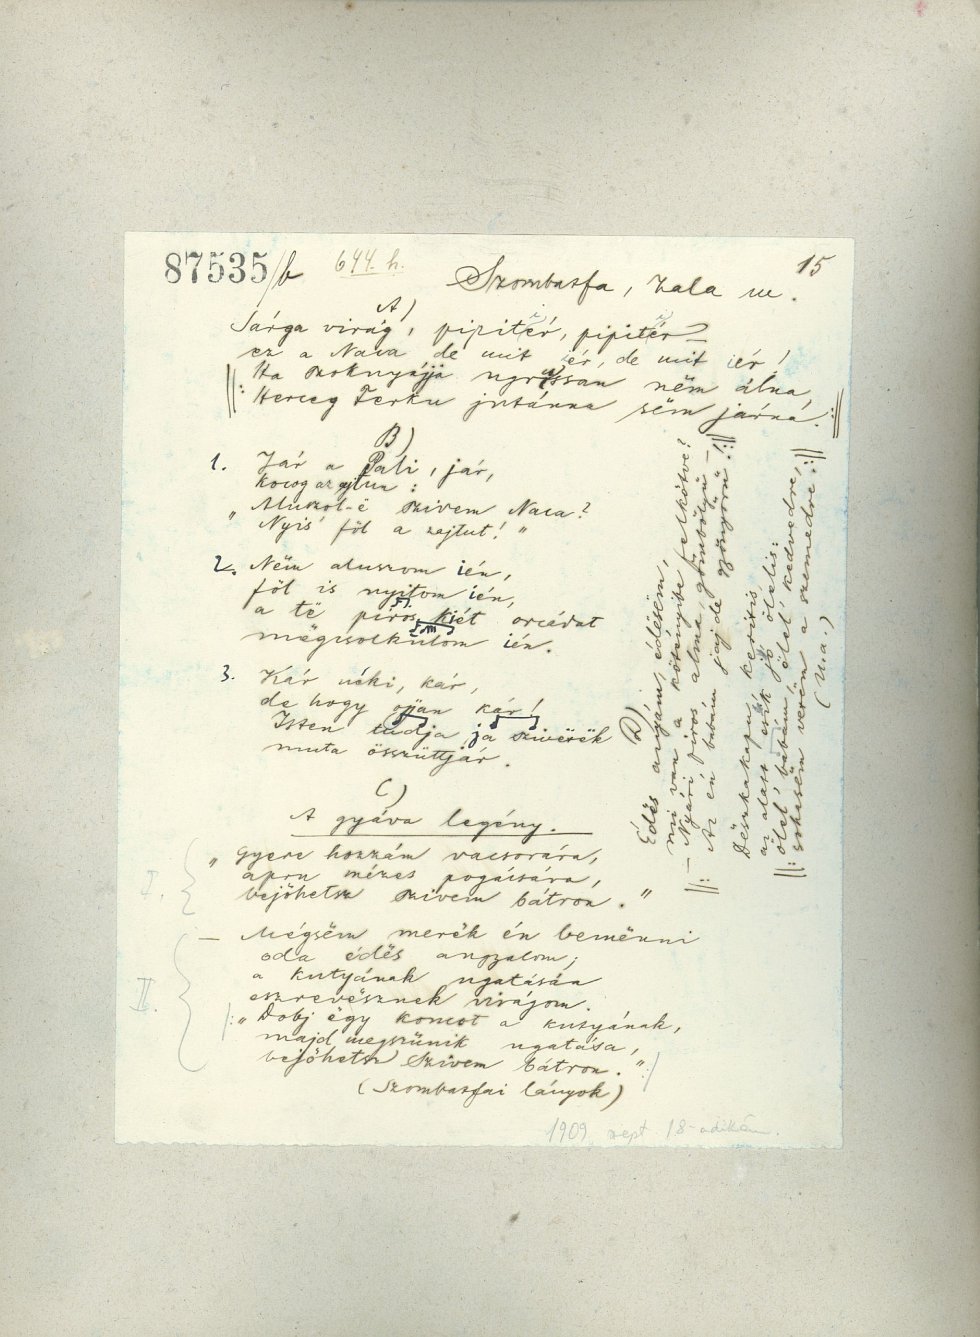 87535/b
644. h.
15
Szombatfa, Zala m.
A)
Sárga virág, pipitér, pipitér
ez a Naca de mit ér, de mit iér!
||: Ha szoknyájja ngrossan nëm álna,
Herceg Ferku jutánna sëm járná. :||
B)
1. Jár a Pali, jár,
kocog az ajtun:
„Aluszol-ë szivem Naca?
Nyis' föl a zejtut!"
2. Nëm aluszom ién,
föl is nyitom ién,
a të piros kiét orcádat
mëgcsolkulom ién.
3. Kár néki, kár,
de hogy ojjan kár!
Isten tudja ja szivërëk
muta összüttjár.
C)
A gyáva legény.
I.
„Gyere hozzám vacsorára,
apru mézes pogácsára,
bejöhetsz szivem bátron."
II.
— Mégsëm merëk én bemënni
oda édës angyalom;
a kutyának ugatására
eszrevësznek virágom.
|: „Dobj ëgy koncot a kutyának,
majd megszünik ugatása,
bejöhetsz szivem bátron." :|
(Szombatfai lányok)
1909 szept 18-adikán.
D)
Édës anyám, édësëm,
mi van a kötényibe felkötve?
||: — Nyári piros alma, gömbölyü —
Az én babám jaj de gyönyörü! :||
Dëszkakapu, keritis
az alatt esik jó ölelis:
||: ölel babám, ölel kedvedre,
sohasëm verëm a szemedre. :||
(U.a.)